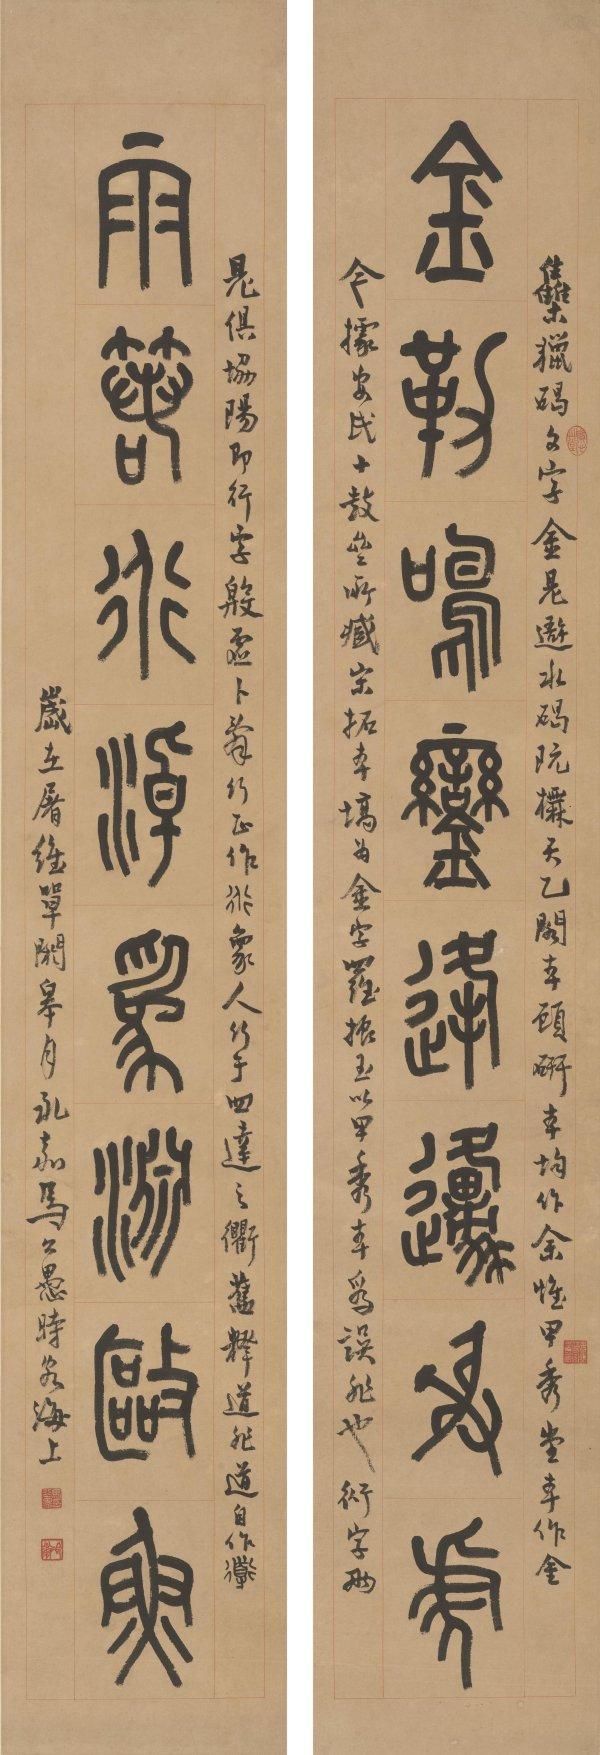 金勒鳴鑾逢邍
集獵碣文字金見避水碣阮橅天乙閣本顧研本均作余惟甲秀堂本作金
今據安氏十鼓齋所藏宋拓本塙為金字羅振玉以甲秀本為誤非也字兩
見俱協陽即行字殷虛卜辭行正作象人行于四達之衢舊釋道非道自作
淖為淵敺魚
歲在屠維單閼皋月永嘉馬公愚時客海上